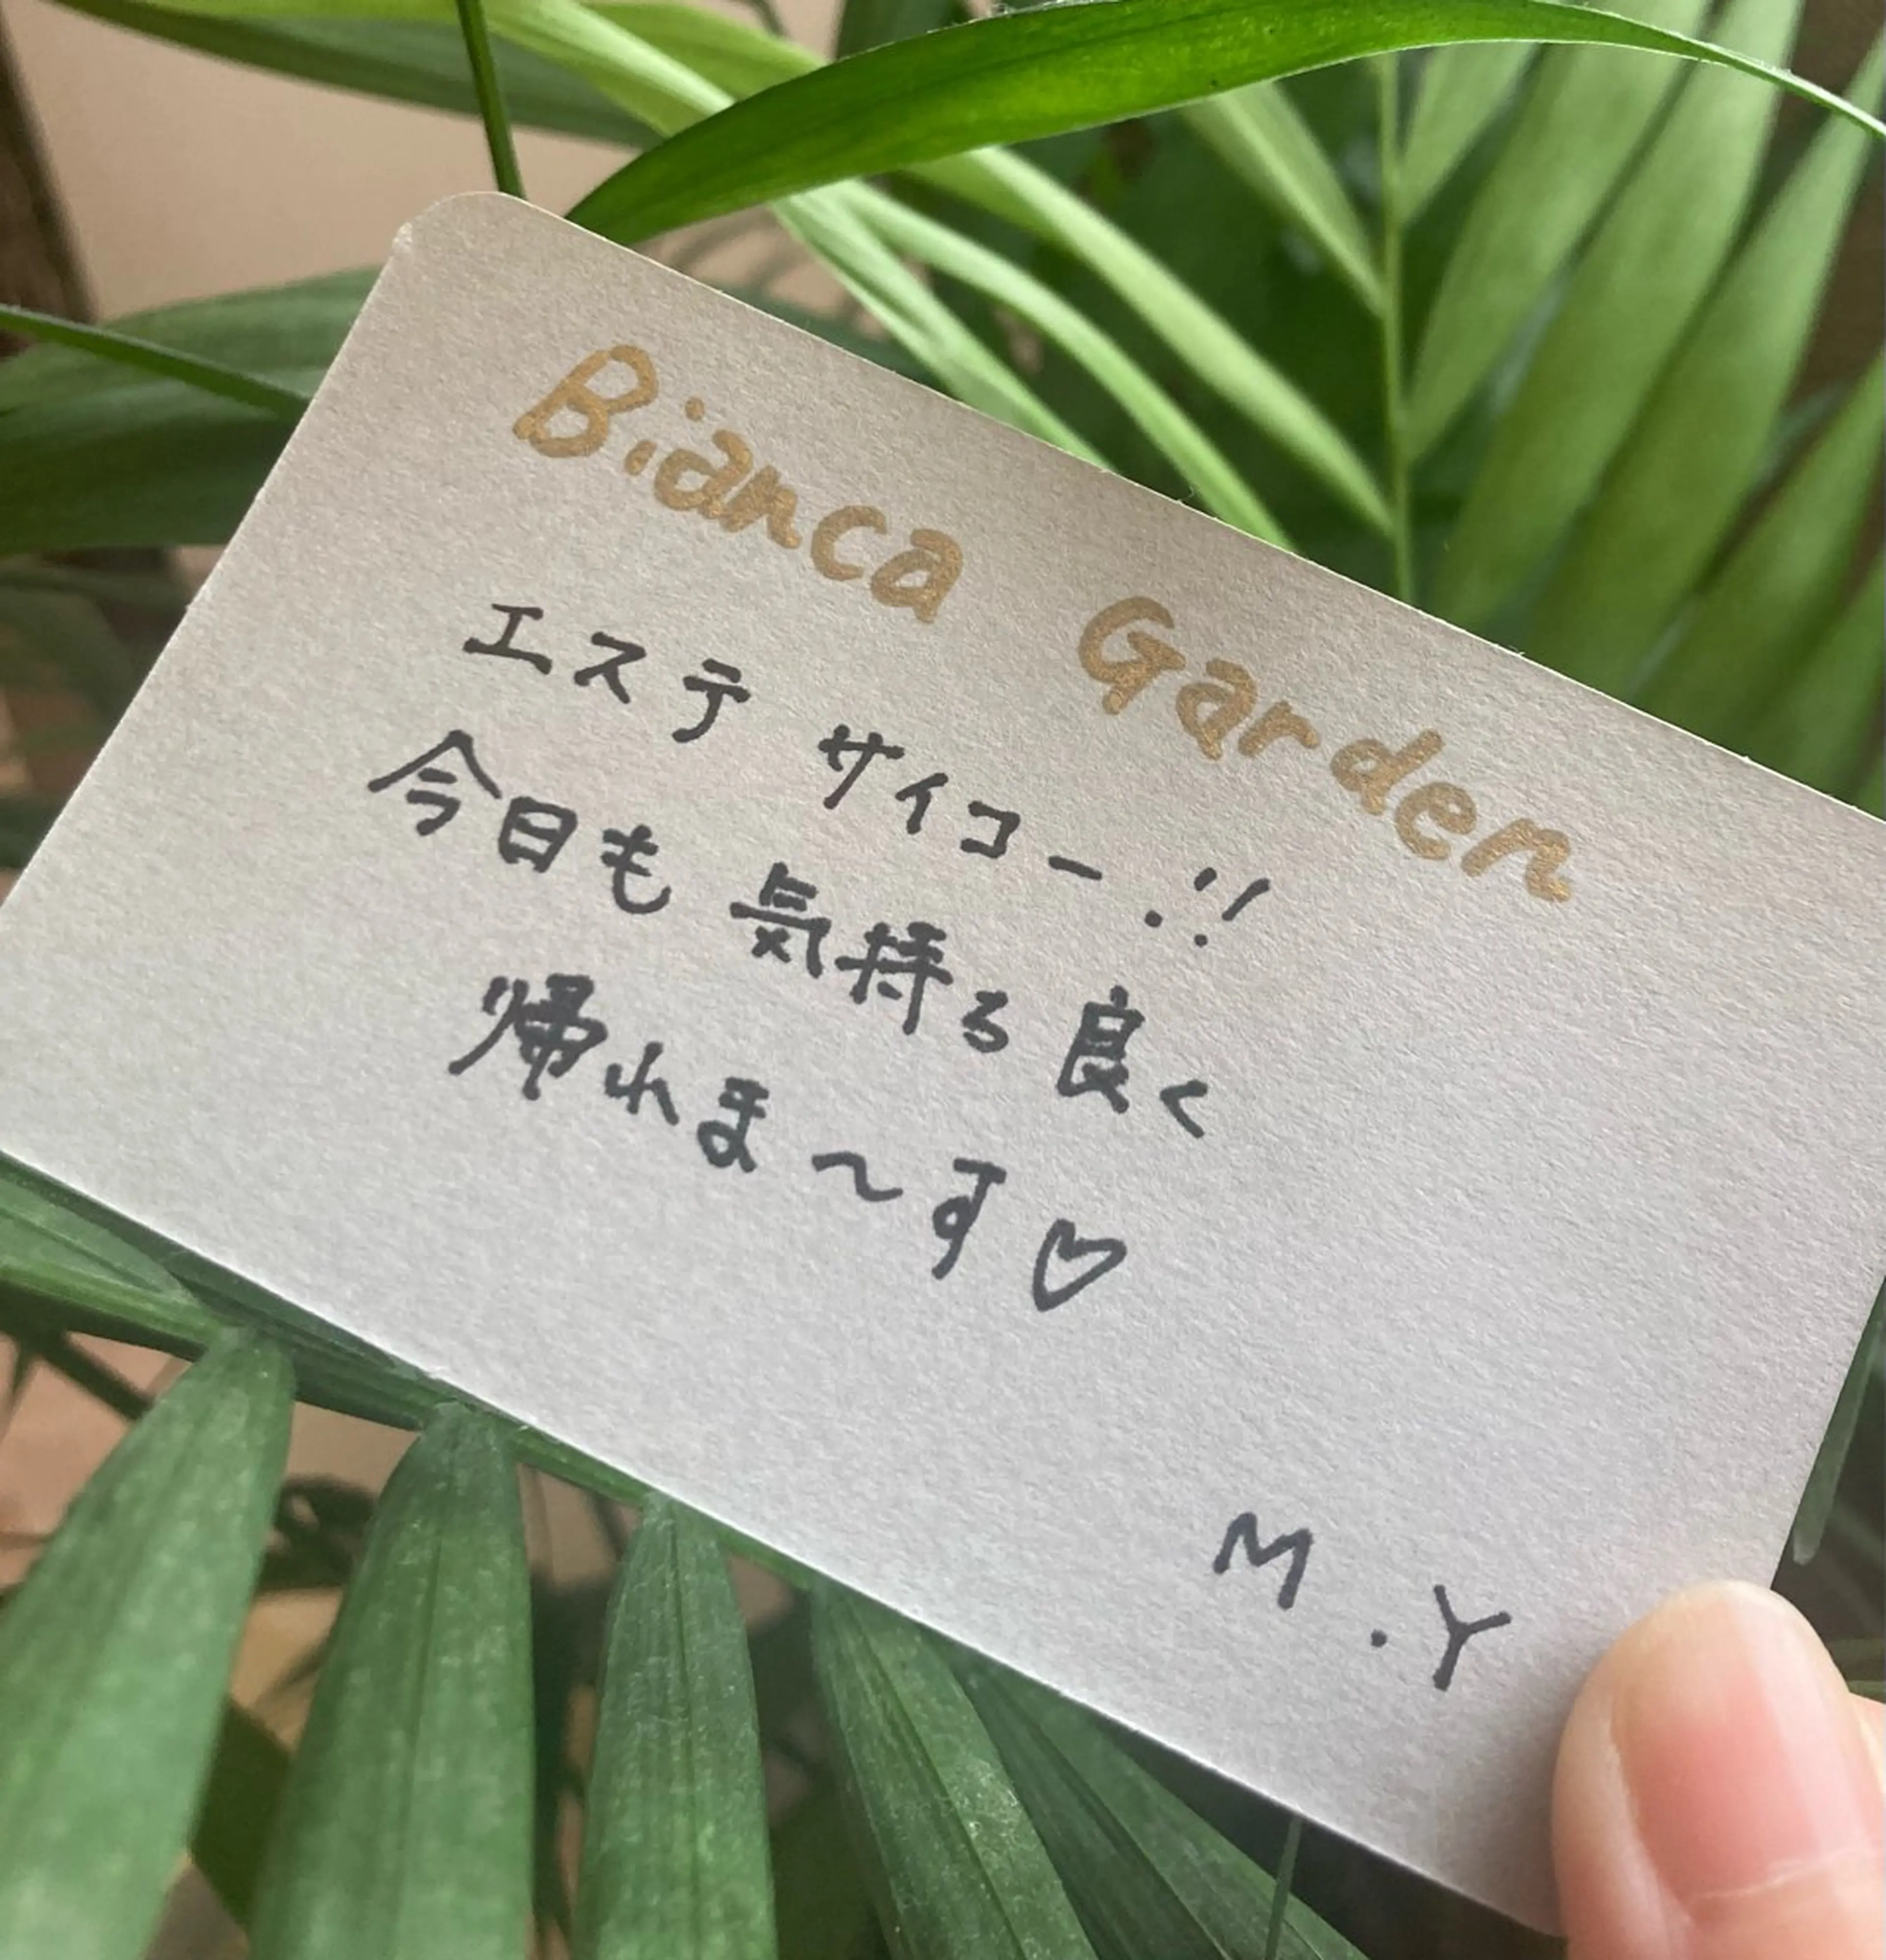 Bianca Garden
エステ サイコー!!
今日も 気持る良く
帰れま〜す♡
M.Y